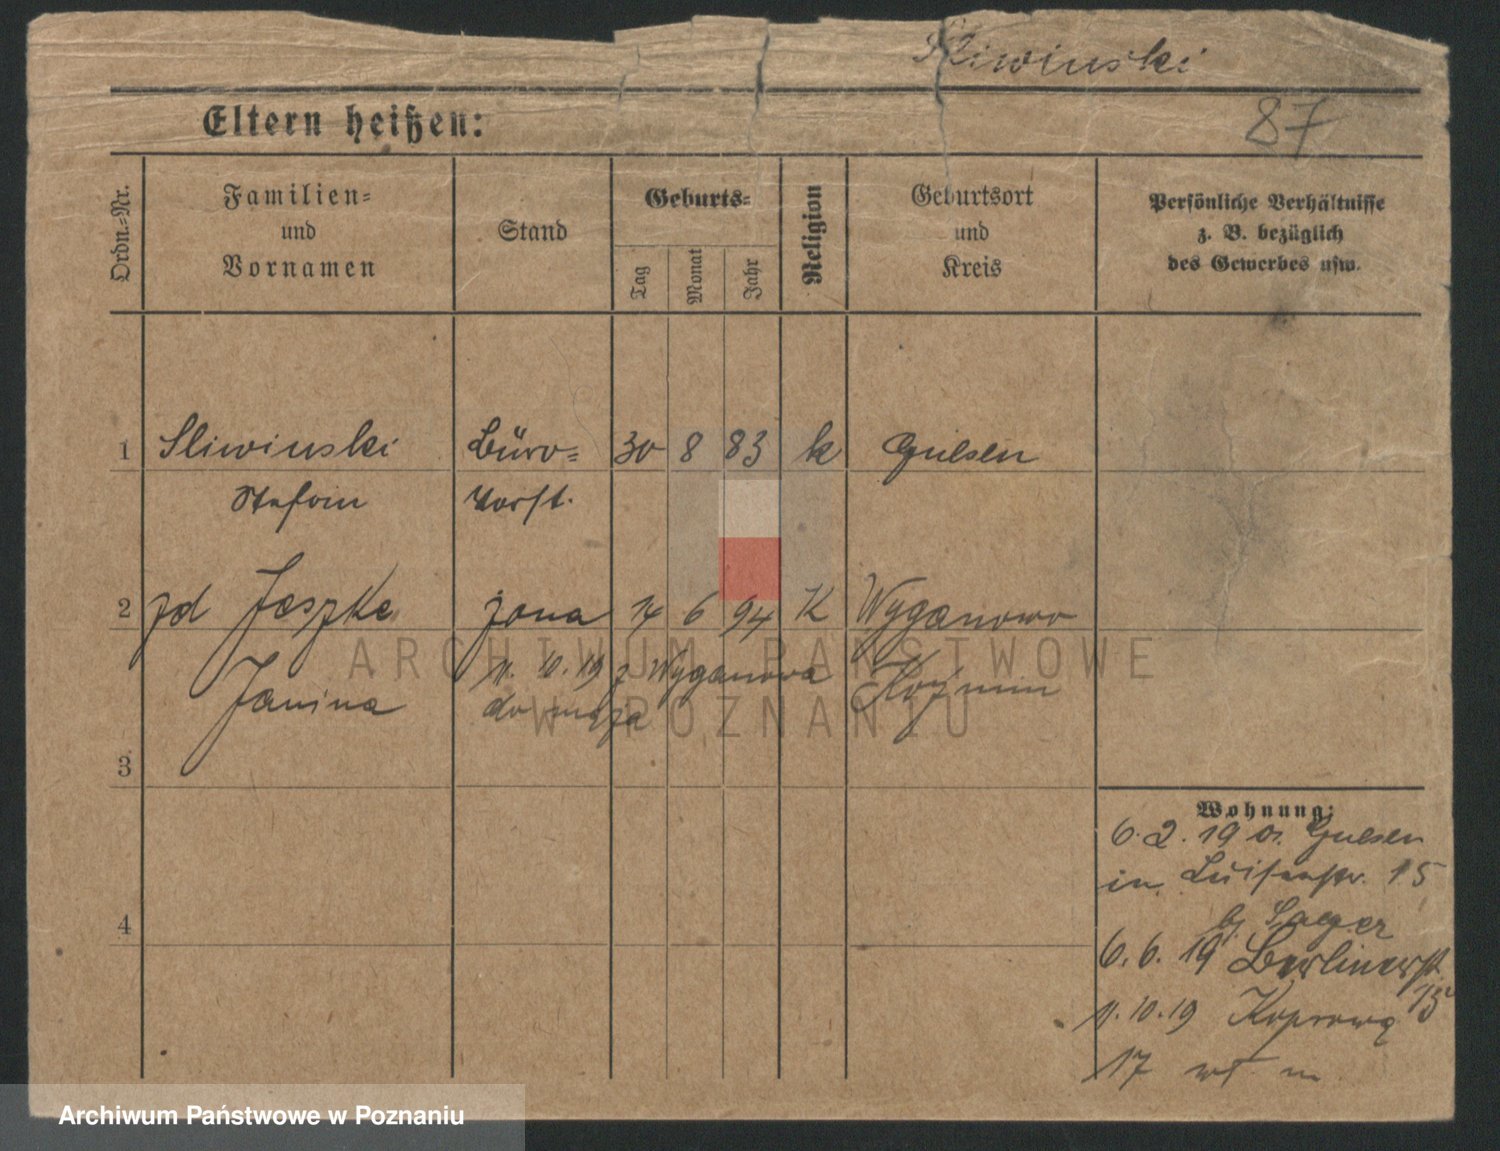 Sliwinski
Eltern heißen:
87
Ordn.-Nr.
Familien-
und
Vornamen
Stand
Geburts-
Tag
Monat
Jahr
Religion
Geburtsort
und
Kreis
Persönliche Verhältnisse
z. B. bezüglich
des Gewerbes usw.
1 Sliwinski Büro- 30 8 83 k Gnesen
Stefan Vorst.
2 zd Jeszke żona 14 6 94 K Wyganowo
Janina 11. 10. 19 z Wyganowa Koźmin
do męża
3
4
Wohnung:
6. 2. 19 Gnesen
in Luisenstr. 15
bj. Saeger
6. 6. 19 Berlinerst.
13
11. 10. 19 Koprowa
17 wł. m
ARCHIWUM PAŃSTWOWE
W POZNANIU
Archiwum Państwowe w Poznaniu